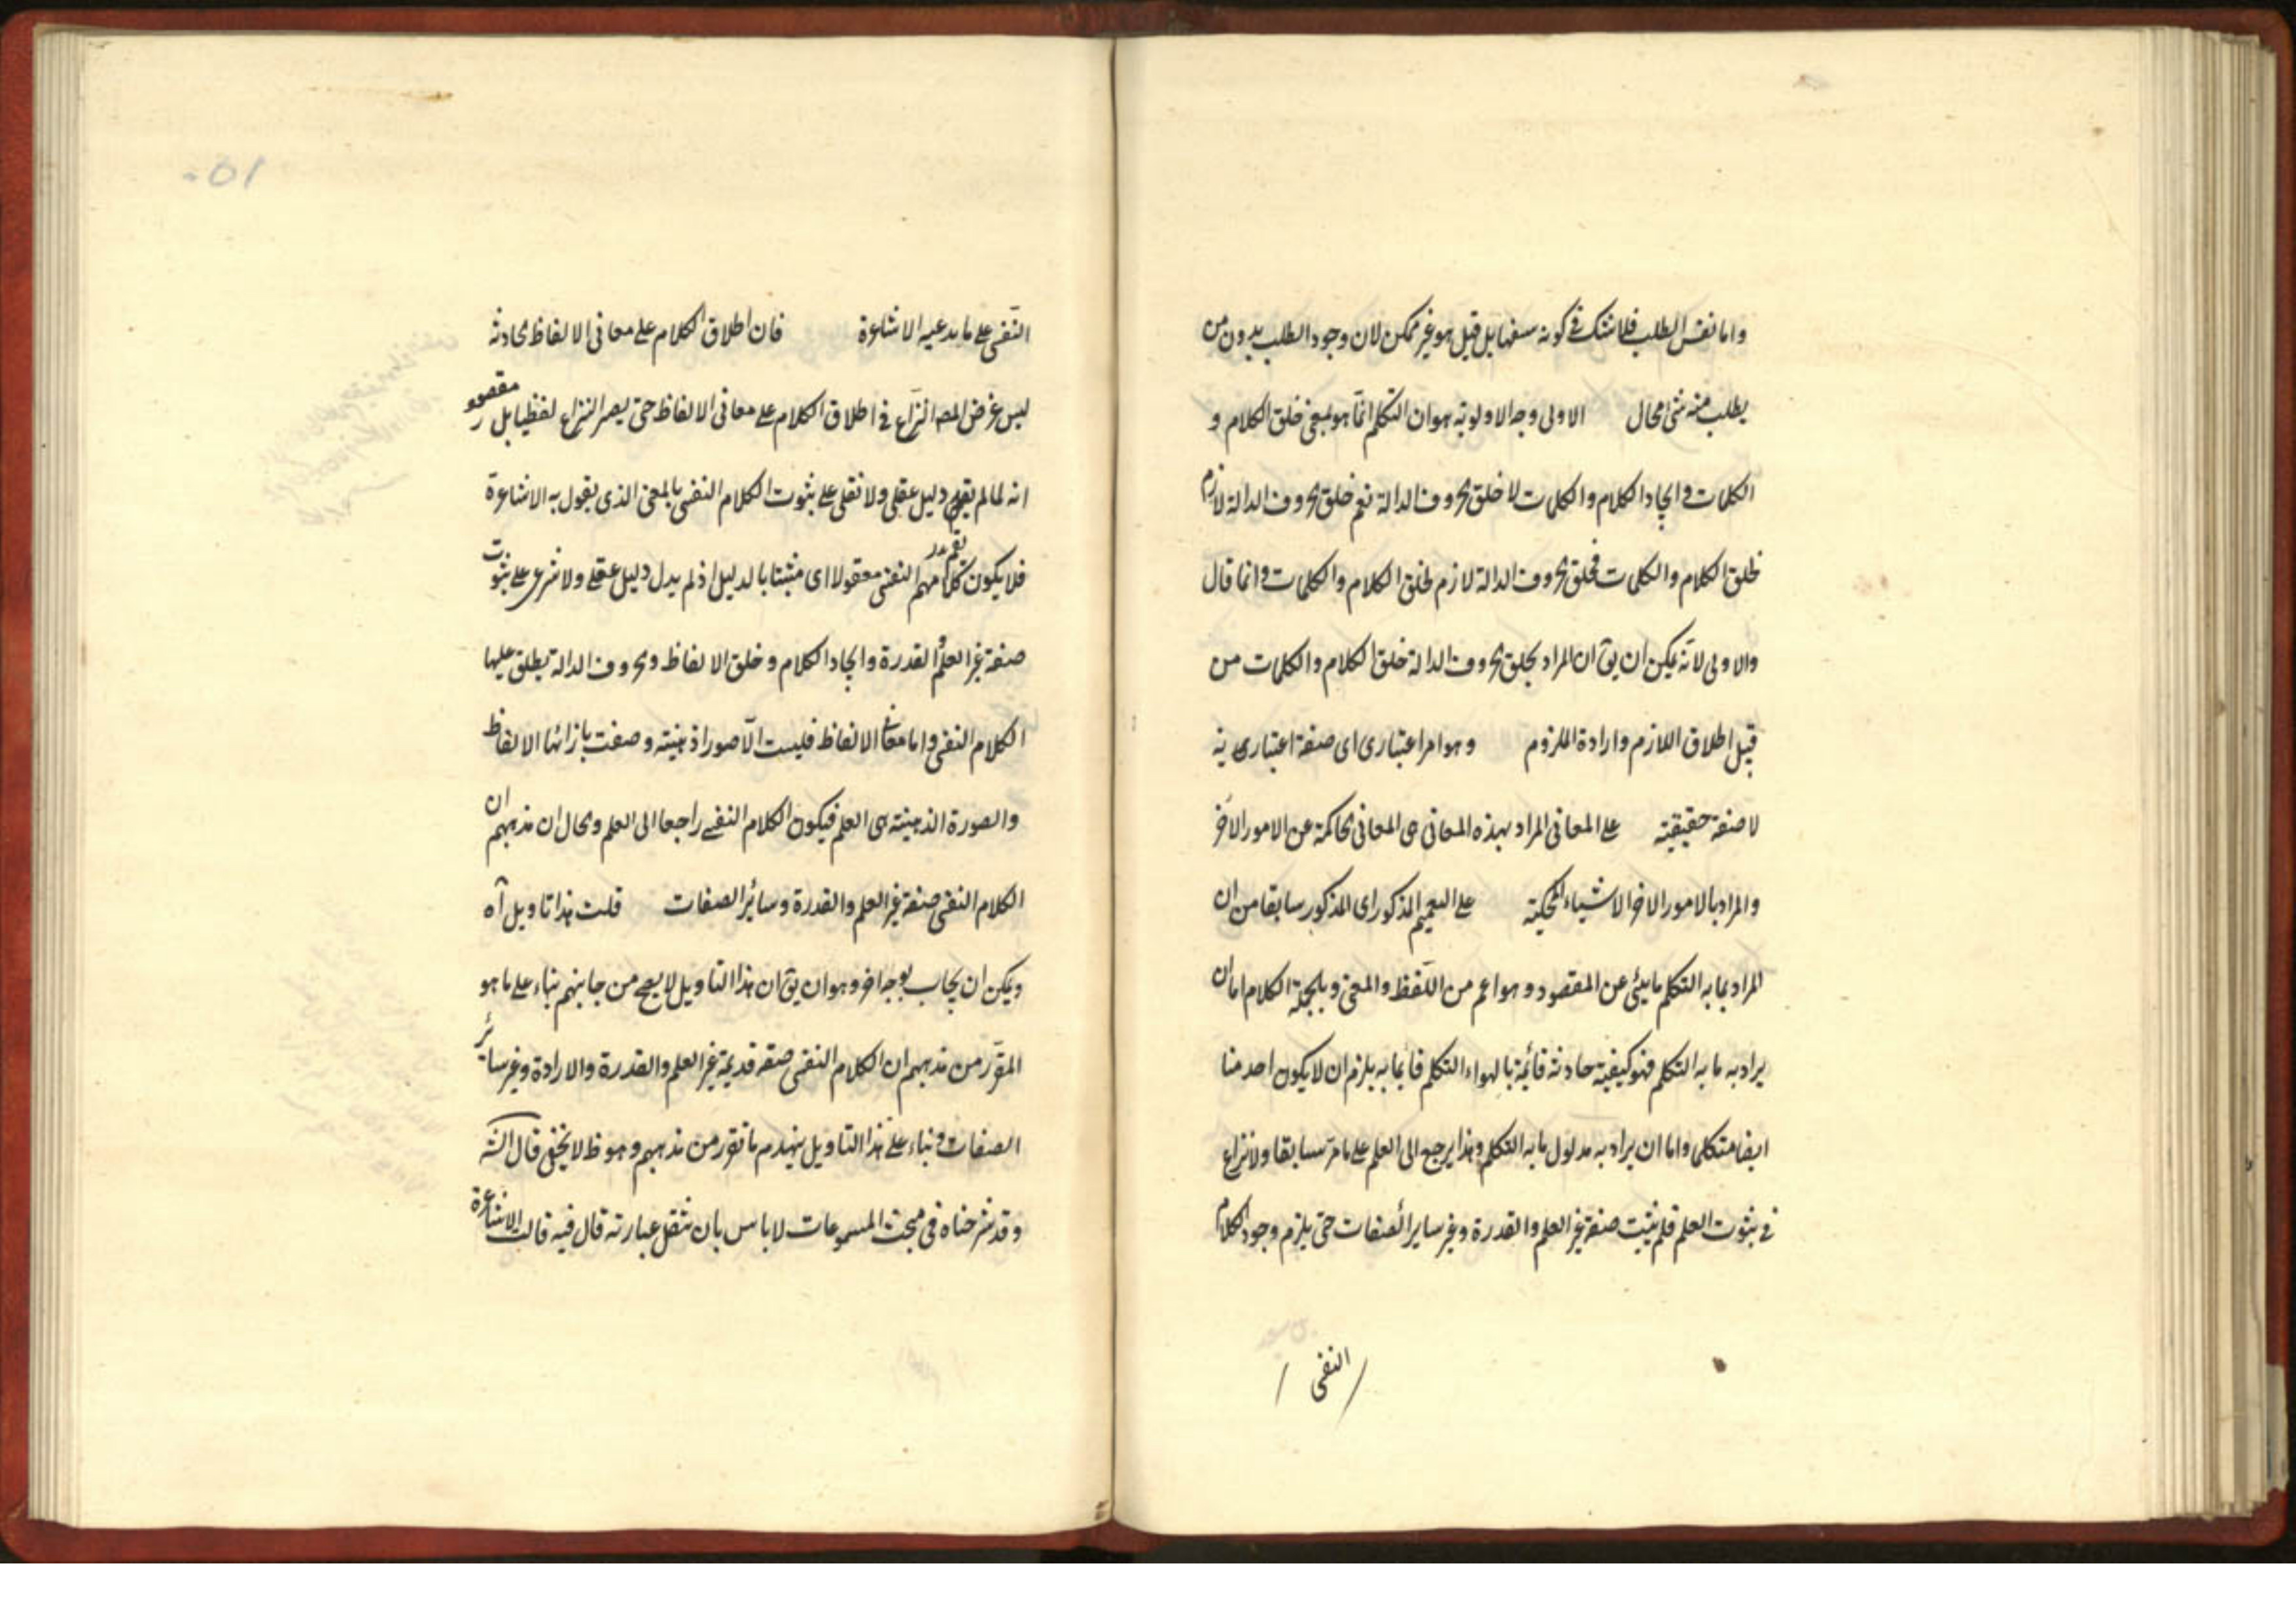 واما نفس الطلب فلا شک فے کونه سفها بل قیل هو غیر ممکن لان وجود الطلب بدون من
یطلب منه شئ محال الاولی وجه الاولویة هو ان التکلم انّما هو بمعنی خلق الکلام و
الکلمات وایجاد الکلام والکلمات لا خلق الحروف الدالة نعم خلق الحروف الدالة لازم
لخلق الکلام والکلمات فخلق الحروف الدالة لازم لخلق الکلام والکلمات وانما قال
والاولی لانّه یمکن ان یق ان المراد بخلق الحروف الدالة خلق الکلام والکلمات من
قبیل اطلاق اللازم وارادة الملزوم وهو امر اعتباری ای صفة اعتباریه
لا صفة حقیقیة علے المعانی المراد بهذه المعانی هی المعانی الحاکمة عن الامور الاخر
والمراد بالامور الاخر الاشیاء المحکیة علے التعمیم المذکور ای المذکور سابقا من ان
المراد بما به التکلم ما ینبئ عن المقصود وهو اعم من اللّفظ والمعنی وبالجملة الکلام اما ان
یراد به ما به التکلم فهو کیفیة حادثة قائمة بالهواء التکلم قائما به یلزم ان لا یکون احد منا
ایضا متکلما واما ان یراد به مدلول ما به التکلم وهذا یرجع الی العلم علے ما مرّ سابقا ولا نزاع
فے ثبوت العلم فلم یثبت صفة غیر العلم والقدرة وغیر سایر الصفات حتی یلزم وجود الکلام
النفسی
النّفسی علے ما یدعیه الاشاعرة فان اطلاق الکلام علے معانی الالفاظ الحادثة
لیس غرض المصه النزاع فے اطلاق الکلام علے معانی الالفاظ حتی یصیر النزاع لفظیا بل مقصوده
انه لما لم یقم دلیل عقلی ولا نقلی علے ثبوت الکلام النفسی بالمعنی الذی یقول به الاشاعرة
فلا یکون کلامهم النفسی معقولا ای مثبتا بالدلیل اذ لم یدل دلیل عقلے ولا شرعی علے ثبوت
صفة غیر العلم والقدرة وایجاد الکلام وخلق الالفاظ والحروف الدالة یطلق علیها
الکلام النفسی واما معانی الالفاظ فلیست الّا صورا ذهنیة وضعت بازائها الالفاظ
والصورة الذهنیة هی العلم فیکون الکلام النفسے راجعا الی العلم والحال ان مذهبهم ان
الکلام النفسی صفة غیر العلم والقدرة وسائر الصفات قلت هذا تاویل آه
ویمکن ان یجاب بوجه اخر وهو ان یق ان هذا التاویل لا یصح من جانبهم بناء علے ما هو
المقرّر من مذهبهم ان الکلام النفسی صفة قدیمة غیر العلم والقدرة والارادة وغیر سائر
الصفات وبناء علے هذا التاویل ینهدم ما تقرر من مذهبهم وهو ظ لا یخفی قال الشه
وقد شرحناه فی مبحث المسموعات لا باس بان ننقل عبارته قال فیه قالت الاشاعرة